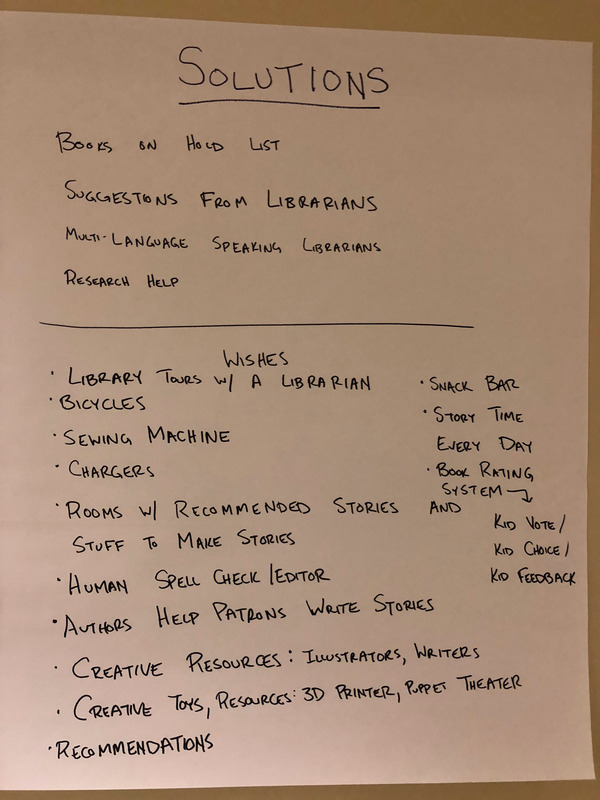 SOLUTIONS
BOOKS ON HOLD LIST
SUGGESTIONS FROM LIBRARIANS
MULTI-LANGUAGE SPEAKING LIBRARIANS
RESEARCH HELP
WISHES
• LIBRARY TOURS W/ A LIBRARIAN
• BICYCLES
• SEWING MACHINE
• CHARGERS
• ROOMS W/ RECOMMENDED STORIES AND
STUFF TO MAKE STORIES
• HUMAN SPELL CHECK/EDITOR
• AUTHORS HELP PATRONS WRITE STORIES
• CREATIVE RESOURCES: ILLUSTRATORS, WRITERS
• CREATIVE TOYS, RESOURCES: 3D PRINTER, PUPPET THEATER
• RECOMMENDATIONS
• SNACK BAR
• STORY TIME
EVERY DAY
• BOOK RATING
SYSTEM →
KID VOTE/
KID CHOICE/
KID FEEDBACK